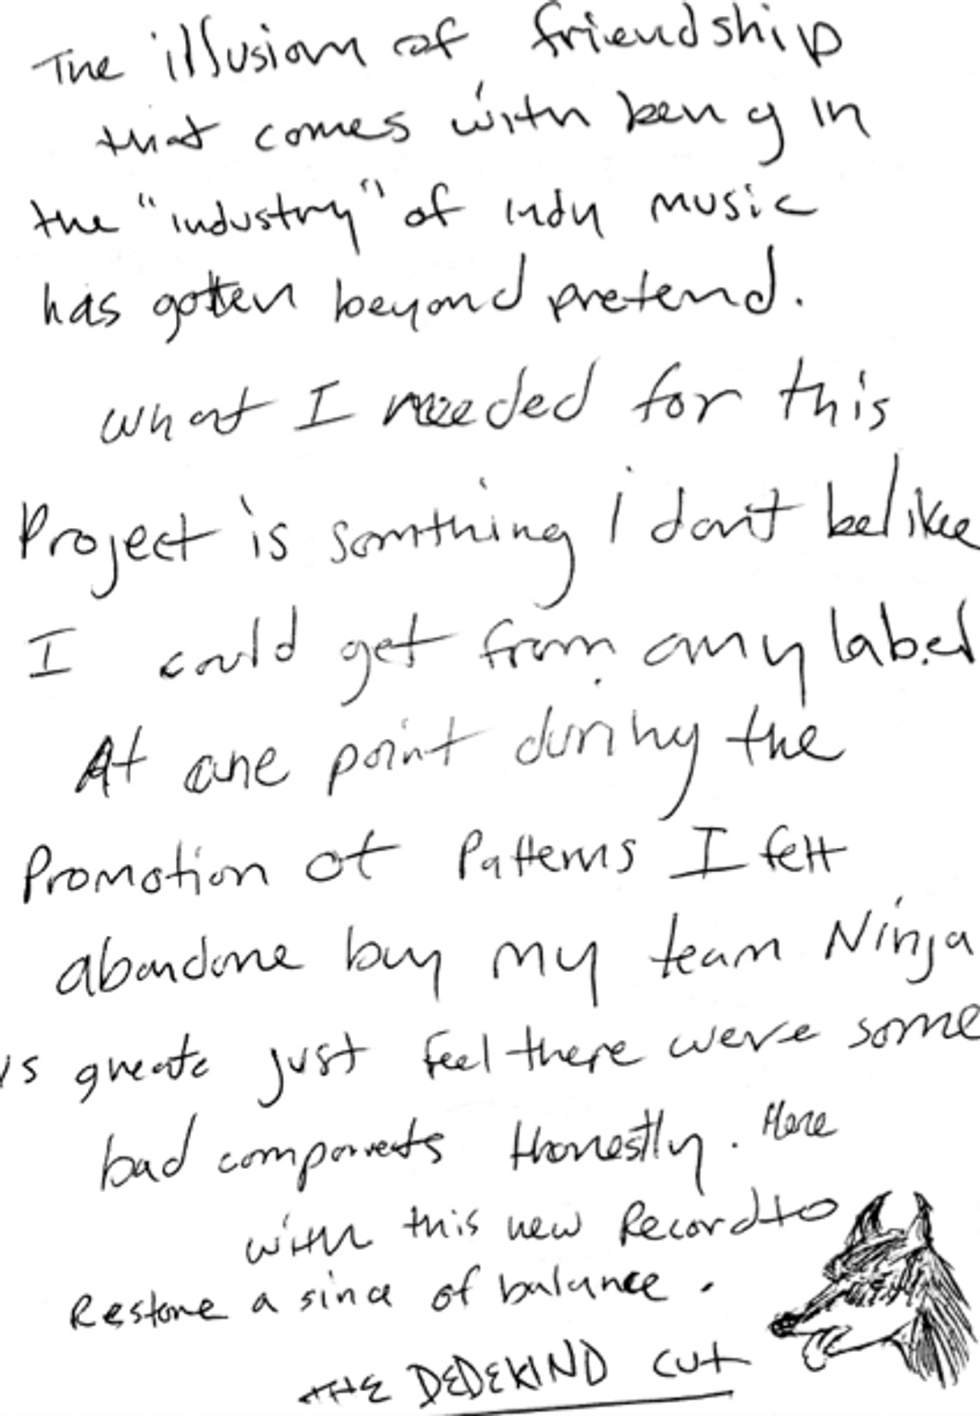 The illusion of friendship
that comes with being in
the "industry" of indy music
has gotten beyond pretend.
what I needed for this
Project is somthing I dont belikee
I could get from any label
At one point during the
Promotion of Patterns I felt
abandone buy my team Ninja
is greate just feel there were some
bad components Honestly. Here
with this new Record to
Restore a since of balance.
THE DEDEKIND CUT